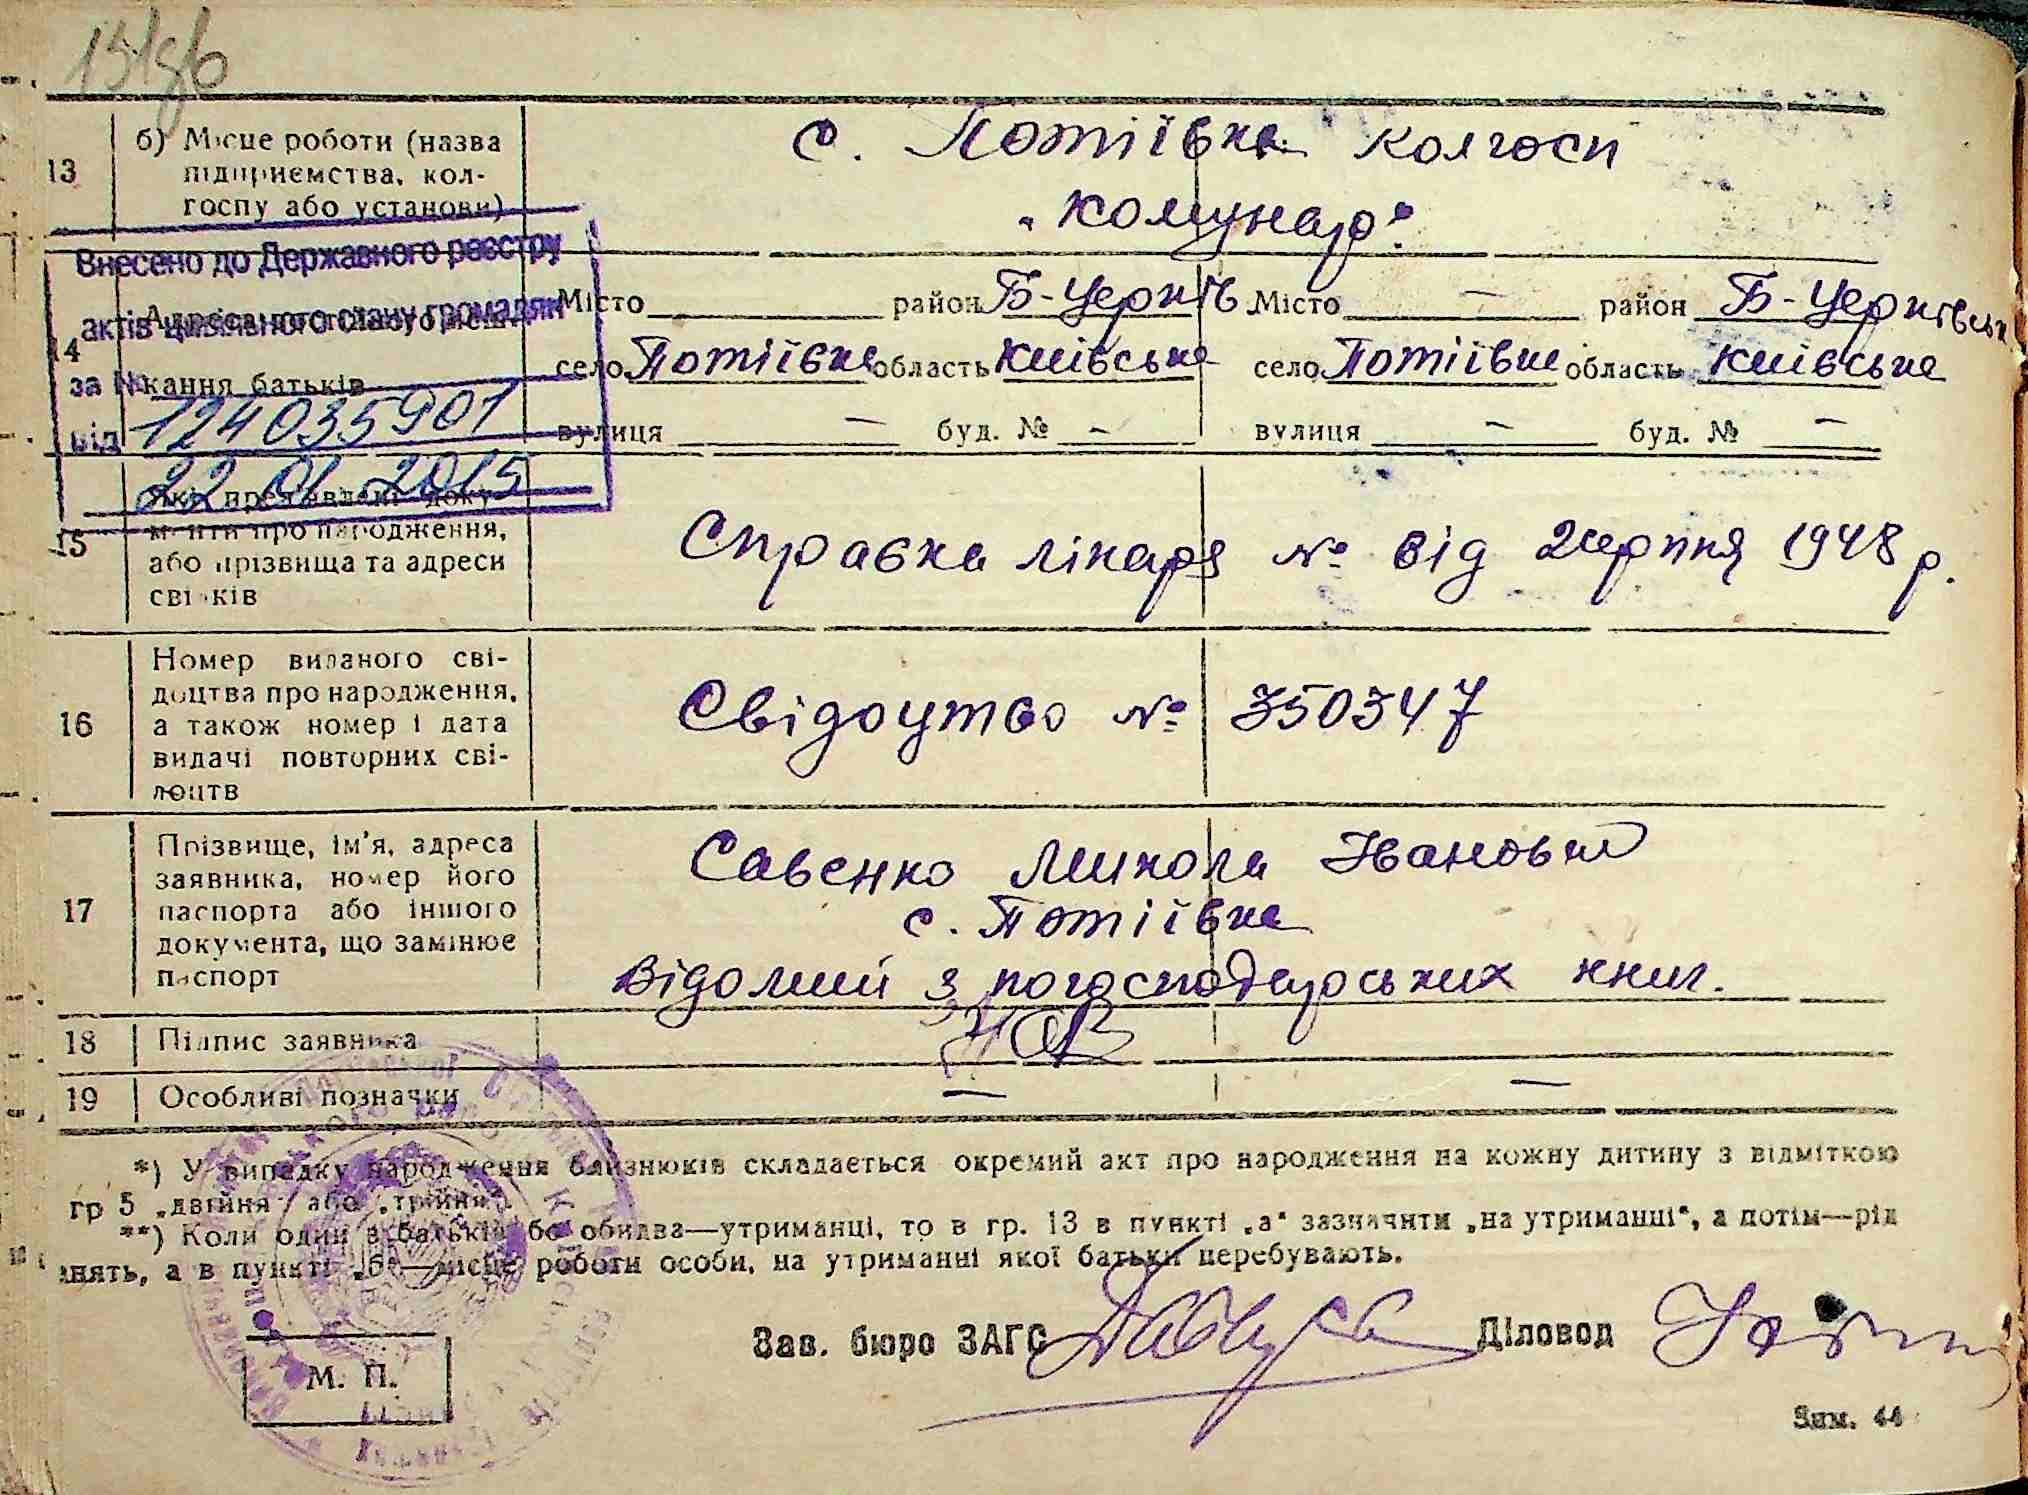 13 б) Місце роботи (назва
підприємства, кол-
госпу або установи)
с. Потіївка колгосп
„Комунар“
Внесено до Державного реєстру
актів цивільного стану громадян
за №
124035901
від
22 01 2015
14
кання батьків
Місто район Б-Церків
село Потіївка область Київська
вулиця — буд. № —
Місто — район Б-Церківськ
село Потіївка область Київська
вулиця — буд. № —
15 Які пред'явлені доку-
менти про народження,
або прізвища та адреси
свідків
Справка лікаря № від 2 серпня 1948 р.
16 Номер виданого сві-
доцтва про народження,
а також номер і дата
видачі повторних сві-
доцтв
Свідоцтво № 350347
17 Прізвище, ім'я, адреса
заявника, номер його
паспорта або іншого
документа, що замінює
паспорт
Савенко Микола Іванович
с. Потіївка
Відомий з погосподарських книг.
18 Підпис заявника
19 Особливі позначки — —
*) У випадку народження близнюків складається окремий акт про народження на кожну дитину з відміткою
гр 5 „двійня“ або „трійня“.
**) Коли один з батьків або обидва—утриманці, то в гр. 13 в пункті „а“ зазначити „на утриманні“, а потім—рід
анять, а в пункті „б“—місце роботи особи, на утриманні якої батьки перебувають.
Зав. бюро ЗАГС
Діловод
М. П.
Зам. 44